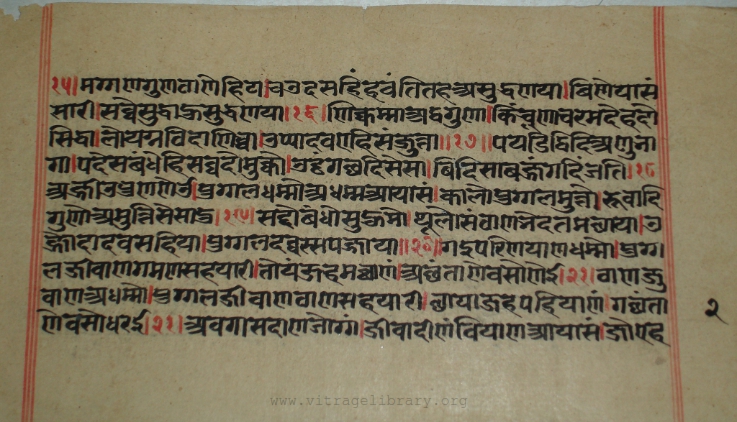 १५। मग्गणगुणगणेहिय। चउदसहिंहवंतितहअसुद्धणया। विणेयासं
सारी। सव्वेसुद्धाऊसुद्धणया। १६ णिक्कम्माअट्ठगुणा। किंचूणाचरमदेहदो
सिद्धा। लोयग्गविदाणिच्चा। उप्पादवएहिसंजुत्ता।। १७।। पयडिद्विदिअणुभा
गा। पदेसबंधेहिसव्वदोमुक्को। उड्ढंगच्छदिसेसा। विदिसावज्जंगदिंजंति। १८
अज्जीवोपुणणेउ। पुग्गलधम्मोअधम्मआयासं। कालोपुग्गलमुत्तो। रूवादि
गुणोअमुत्तिसेसादु। १९। सद्दोबंधोसुहुमो। थूलोसंठाणभेदतमछाया। उ
ज्जोदादवसहिया। पुग्गलदव्वस्सपज्जाया।। २०। गइपरिणयाणधम्मो। पुग्ग
लजीवाणगमणसहयारी। तोयंजहमच्छाणं। अच्छंताणेवसोणेई। २१। ठाणजु
याणअधम्मो। पुग्गलजीवाणठाणसहयारी। छायाजहपहियाणं। गच्छंता
णेवसोधरई। २२। अवगासदाणजोग्गं। जीवादीणंवियाणआयासं। जोण्ह
२
www.vitragelibrary.org